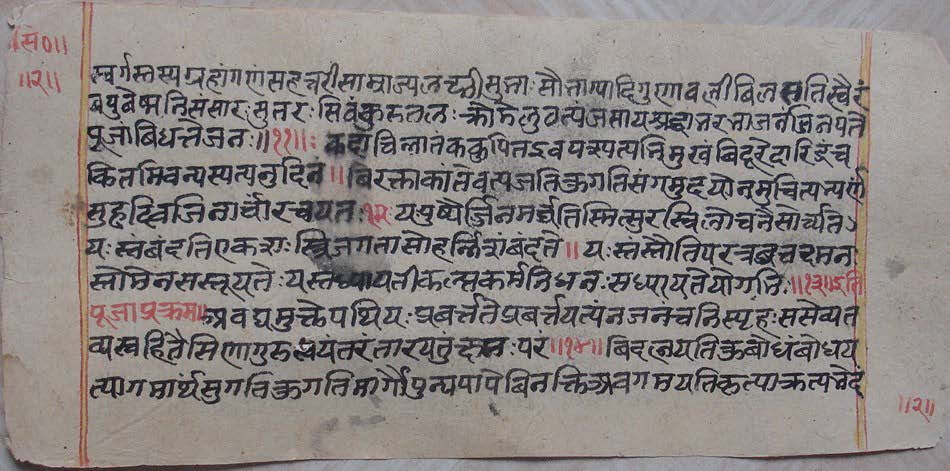 ॥सिं०॥
॥२॥
स्वर्गस्तस्य ग्रहांगणं सहचरी साम्राज्यलच्छी सुभा: सौभाग्यादिगुणावली बिलसति स्वैरं
बपुबेष्मनि संसार: सुतर: सिवं करतल: क्रोडे लुवत्यंजसाय श्रद्धाभरभाजनं जिनपते
पूजां बिधत्ते जन: ॥११॥: कदाचिंनातंक कुपित इव पस्पत्यभिमुखं बिदूरे दारिद्रं च
कितमिव नस्यत्यनुदिनं ॥ बिरक्ता कांतेव त्यजति कुगति संगमुदयो न मुचित्यभ्यर्णं
सुहृदिव जिनार्चां रचयत: १२ य: पुष्पैर्जिनमर्चति स्मित्सुरस्त्रिलोचनै सोर्च्यते
य: स्तं बंदति एकश: स्त्रिजगता सोहर्न्निशं बंदते ॥ य: स्तं स्तौति परत्र बृत्रदमन
स्तोमेन स स्तूयते यस्तं ध्यायती कल्प्तकर्मनिधन: स ध्यायते योगिभि: ॥१३॥ इति
पूजाप्रक्रमः॥ अवद्यमुक्ते पथि य: प्रवर्त्तते प्रबर्त्तयत्यंनजनं च निस्पृह: स सेव्यित
व्य स्वहितैसिणा गुरु स्वयं तरंतारयतुं क्षम: परं ॥१४॥ बिदलयति कुबोधं बोधय
त्यागमार्थं सुगतिकुगतिमार्गौ पुन्यपापे बिनक्ति अवगमयति कृत्याकृत्यभेदं
॥२॥